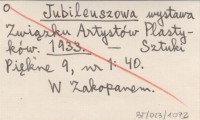 Jubileuszowa wystawa
Związku Artystów Plasty-
ków. 1933. — Sztuki
Piękne 9, nr 1: 40.
W Zakopanem.